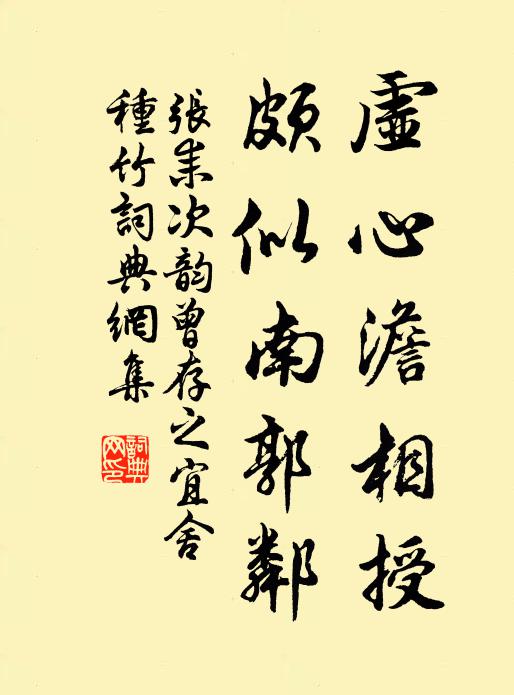 虛心澹相授
頗似南郭鄰
張耒次韵曾存之宜舍
種竹詞典網集
詞典网印